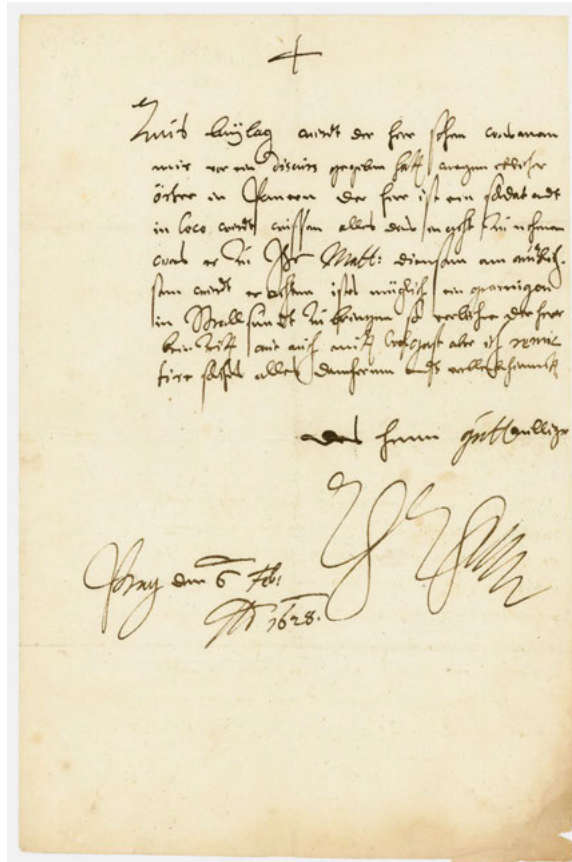 beylag wirdt der herr sehen was man
mir vor ein discurs gegeben hatt wegen etlicher
örter in Pomern der herr ist ein soldat undt
in loco wirdt wissen alles das in acht zu nehmen
was er zu Ihr Matt: diensten am
wirdt erachten ist es müglich ein guarnigon
in Strallsundt zu bringen so verliehre der herr
kein wie auch mitt Wolgast aber ich remit
tire solches alles dem herrn undt verbleibe hiemitt
des herrn guttwilliger
Prag den 6 Feb:
Ao 1628.